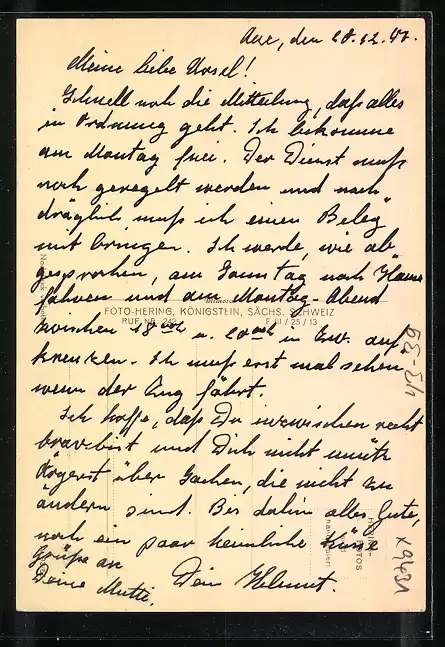 Aue, den 28.12.47.
Meine liebe Ursel!
Schnell noch die Mitteilung, daß alles
in Ordnung geht. Ich bekomme
am Montag frei. Der Dienst muß
noch geregelt werden und nach
träglich muß ich einen Beleg
mit bringen. Ich werde, wie ab
gesprochen, am Sonntag nach Hause
fahren und am Montag-Abend
FOTO-HERING, KÖNIGSTEIN, SÄCHS. SCHWEIZ
zwischen 18 00 u. 20 00 in
RUF NR. 242
F III / 25 / 13
kreuzen. Ich muß erst mal sehen,
wenn der Zug fährt.
Ich hoffe, daß Du inzwischen recht
brav bist und Dich nicht unnütz
ärgerst über Sachen, die nicht zu
ändern sind. Bis dahin alles Gute,
noch ein paar heimliche Küsse
Grüße an
Deine Mutti.
Dein Helmut.